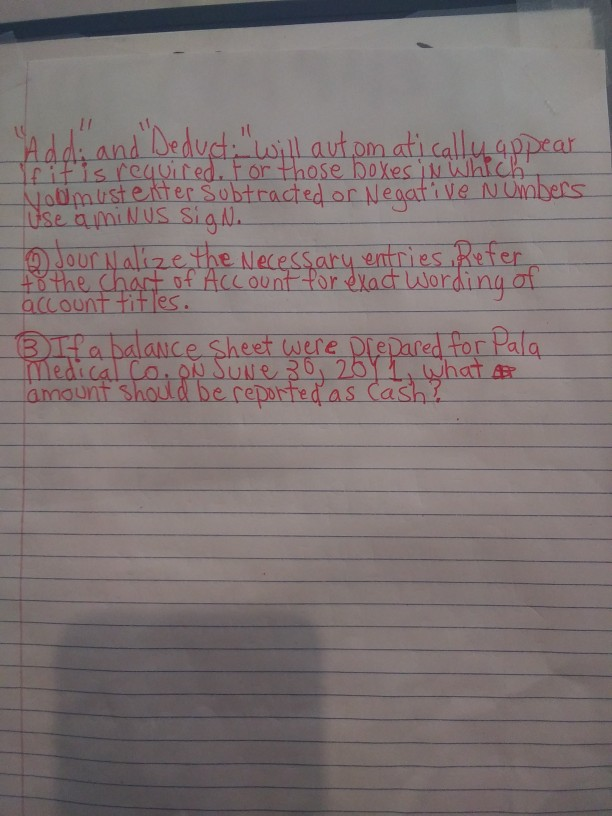 "Add:" and "Deduct:" will automatically appear
if it is required. For those boxes in which
you must enter subtracted or Negative Numbers
use a miNUS SigN.
② JourNalize the Necessary entries. Refer
to the chart of Account for exact wording of
account titles.
③ If a balance sheet were prepared for Pala
Medical Co. ON JUNE 30, 20Y1, what
amount should be reported as Cash?